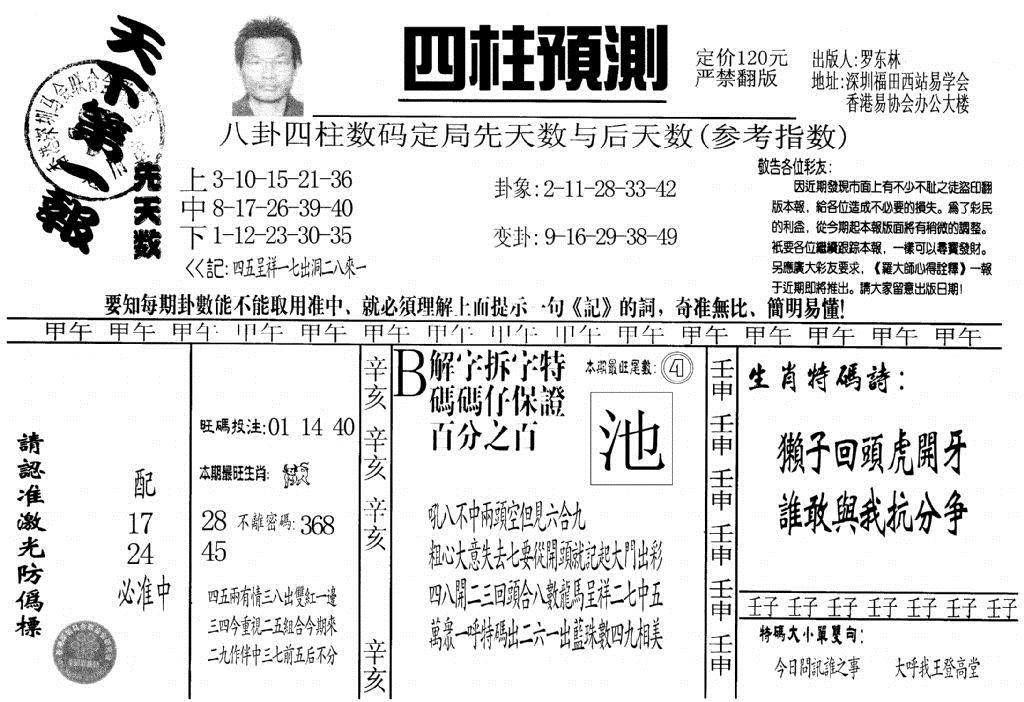 天下第一報
四柱預測
定价120元
严禁翻版
出版人:罗东林
地址:深圳福田西站易学会
香港易协会办公大楼
八卦四柱数码定局先天数与后天数(参考指数)
先天数
上 3-10-15-21-36
中 8-17-26-39-40
下 1-12-23-30-35
<<記: 四五呈祥一七出洞二八來一
卦象: 2-11-28-33-42
变卦: 9-16-29-38-49
敬告各位彩友:
因近期發現市面上有不少不耻之徒盜印翻
版本報,給各位造成不必要的損失。爲了彩民
的利益,從今期起本報版面將有稍微的調整。
衹要各位繼續跟踪本報,一樣可以尋寶發財。
另應廣大彩友要求,《羅大師心得詮釋》一報
于近期即將推出。請大家留意出版日期!
要知每期卦數能不能取用准中、就必須理解上面提示一句《記》的詞,奇准無比、簡明易懂!
甲午 甲午 甲午 甲午 甲午 甲午 甲午 甲午 甲午 甲午 甲午 甲午 甲午 甲午 甲午
請認准激光防僞標
配
17
24
必准中
旺碼投注:01 14 40
本期最旺生肖:
28 不離密碼: 368
45
四五兩有情三八出雙紅一邊
三四今重視二五組合今期來
二九作伴中三七前五后不分
辛亥
辛亥
辛亥
辛亥
B 解字拆字特
碼碼仔保證
百分之百
本期最旺尾數:
池
吼八不中兩頭空但見六合九
粗心大意失去七要從開頭就記起大門出彩
四八開二三回頭合八數龍馬呈祥二七中五
萬衆一呼特碼出二六一出藍珠數四九相美
壬申
壬申
壬申
壬申
壬申
壬申
生肖特碼詩:
獺子回頭虎開牙
誰敢與我抗分争
壬子 壬子 壬子 壬子 壬子 壬子 壬子
特碼大小單雙向:
今日問訊誰之事 大呼我王登高堂